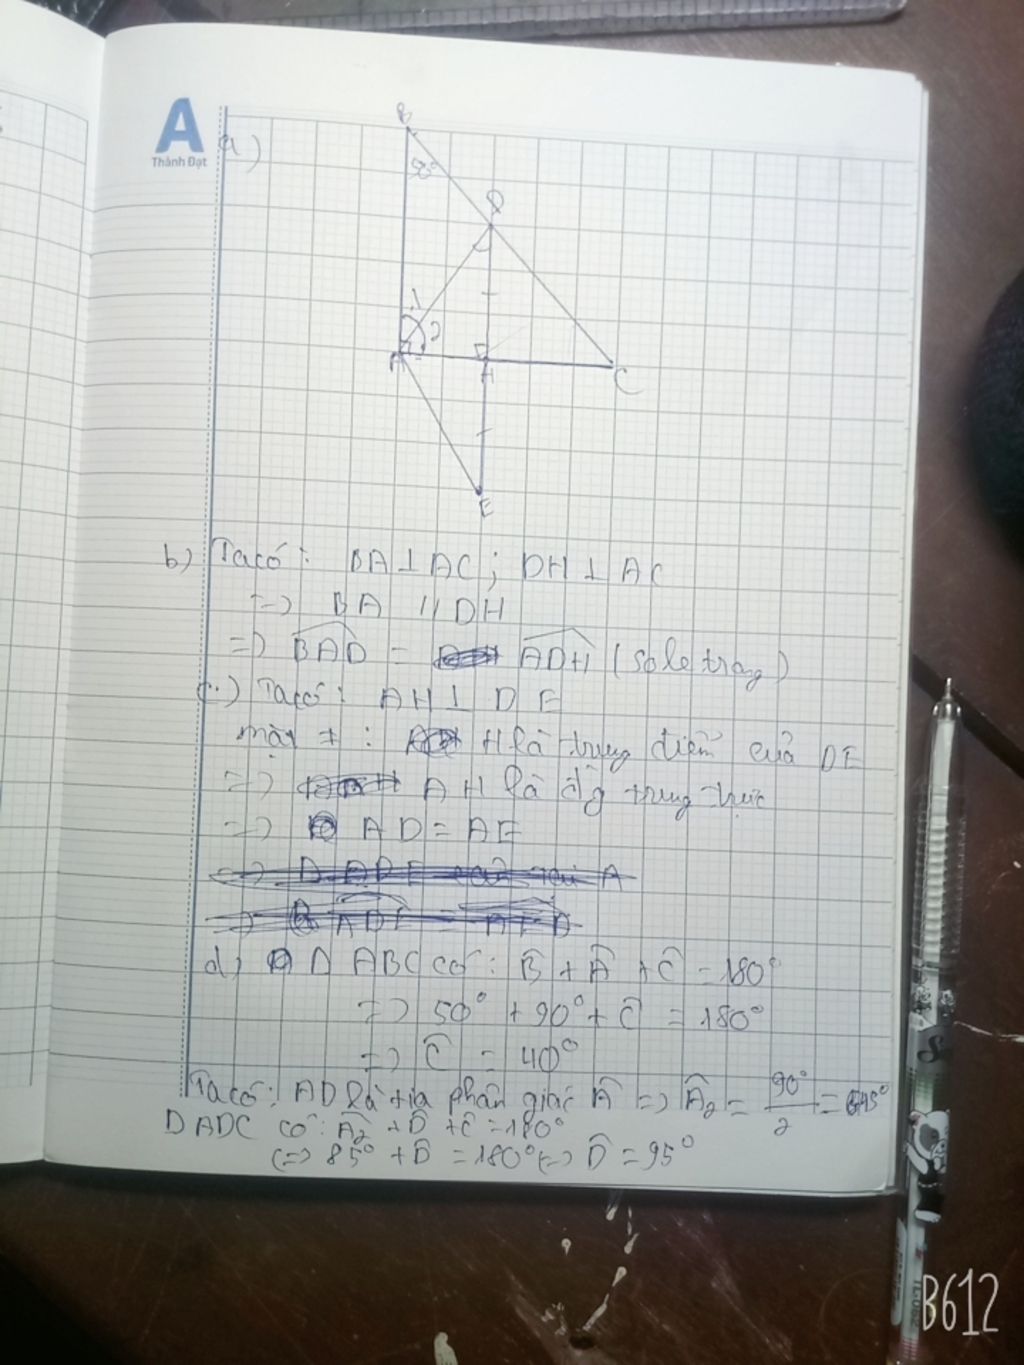 A
Thành Đạt
a)
B
50°
D
1
2
A
H
C
E
b) Ta có: BA ⊥ AC ; DH ⊥ AC
=> BA // DH
=> BAD = ADH (so le trong)
c.) Ta có: AH ⊥ DE
mặt ≠ : H là trung điểm của DE
=> AH là đg trung trực
=> AD = AE
=> D ADE cân tại A
=> ADE = AED
d) D ABC có: B̂ + Â + Ĉ = 180°
=> 50° + 90° + Ĉ = 180°
=> Ĉ = 40°
Ta có: AD là tia phân giác Â => Â2 = 90°/2 = 45°
D ADC có: Â2 + D̂ + Ĉ = 180°
(=> 85° + D̂ = 180° (=> D̂ = 95°
B612